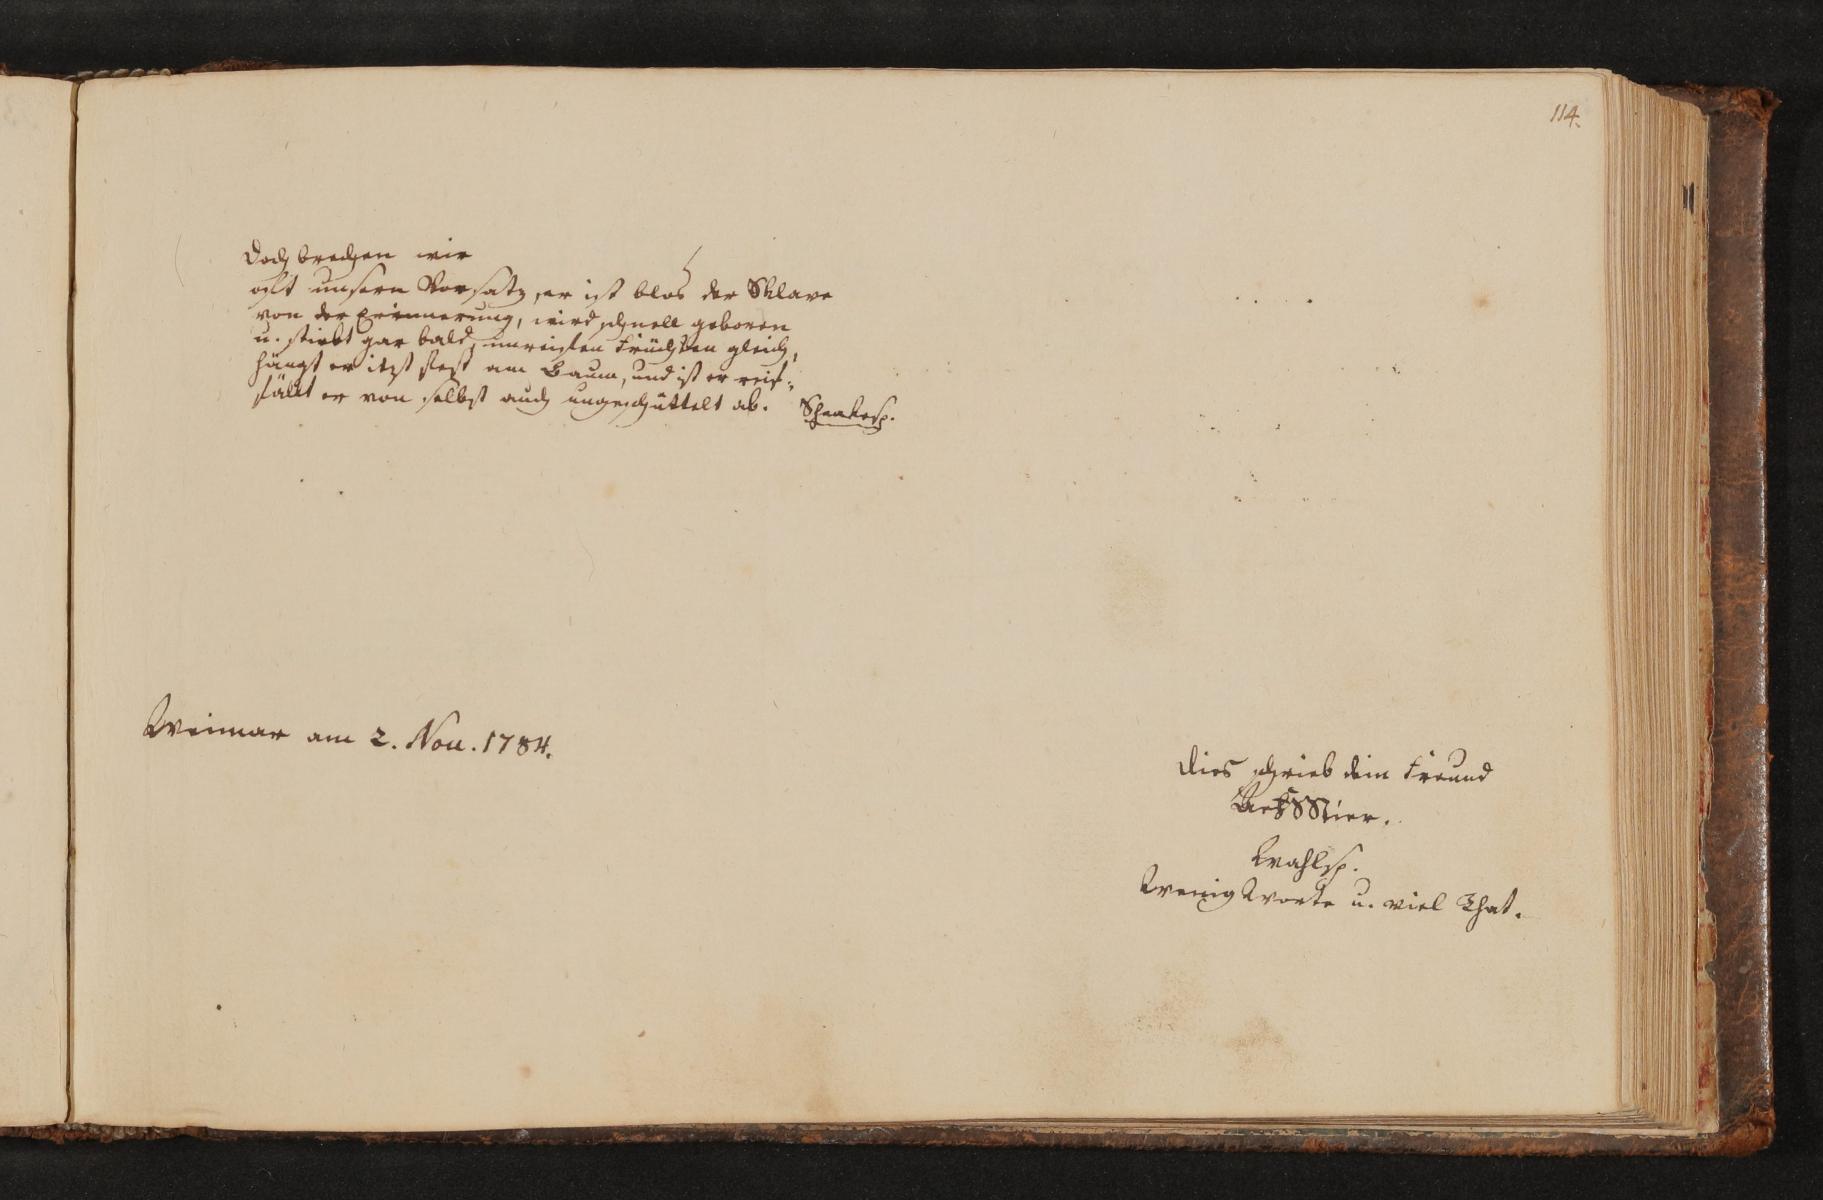 114.
Doch brechen wir
oft unsern Vorsatz, er ist blos der Sklave
von der Erinnerung, wird schnell geboren
u. stirbt gar bald, unreifen Früchten gleich,
hängt er itzt fest am Baum, und ist er reif,
fällt er von selbst auch ungeschüttelt ab. Shakesp.
Weimar am 2. Nov. 1784.
Dies schrieb dein Freund
Wahlsp.
Wenig Worte u. viel That.